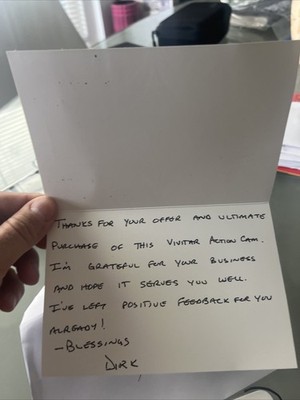 THANKS FOR YOUR OFFER AND ULTIMATE
PURCHASE OF THIS VIVITAR ACTION CAM.
I'M GRATEFUL FOR YOUR BUSINESS
AND HOPE IT SERVES YOU WELL.
I'VE LEFT POSITIVE FEEDBACK FOR YOU
ALREADY!
—BLESSINGS
DIRK